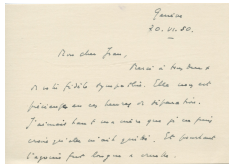 Genève
20. VI. 80.
Mon cher Jean,
Merci à
de ta fidèle sympathie. Elle m'est
précieuse en ces heures de séparation.
J'aimais tant ma mère que je ne puis
croire qu'elle m'ait quitté. Et pourtant
l'agonie fut longue et cruelle.